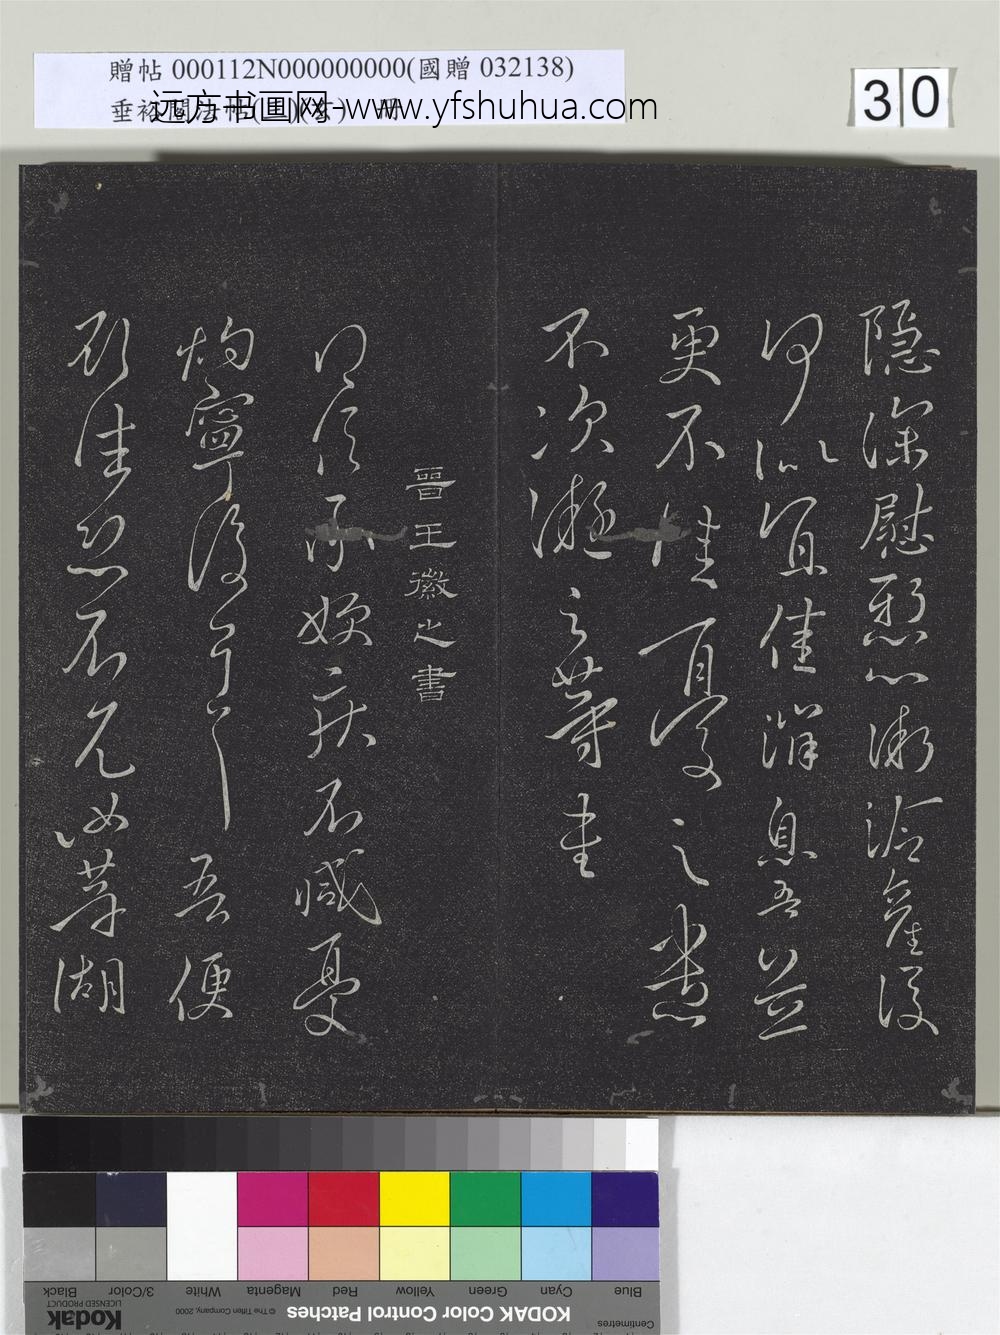 贈帖 000112N000000000(國贈 032138)
垂裕閣法帖
远方书画网 www.yfshuhua.com
30
隱深慰懸心漸冷產後
何似宜佳消息吾並
更不佳憂之
不次凝之等書
晉王徽之書
得信承嫂疾不減憂
灼寧復可言吾便
欲往恐不見汝等湖
Blue
Cyan
Green
Yellow
Red
Magenta
White
3/Color
Black
Centimetres
KODAK Color Control Patches
© The Tiffen Company, 2000
Kodak
LICENSED PRODUCT